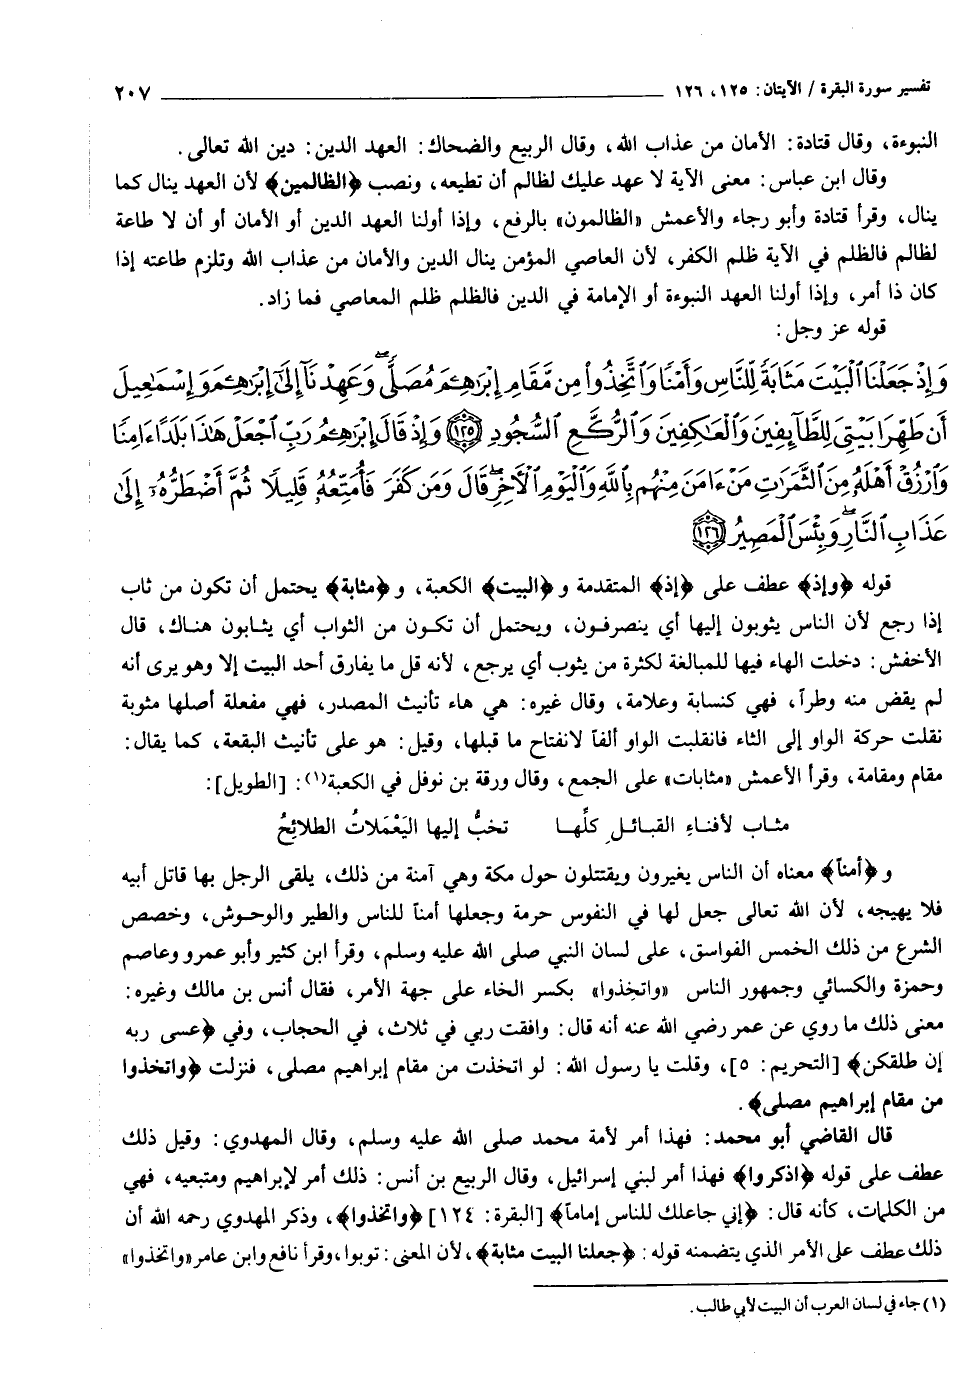 تفسير سورة البقرة / الآيتان: ١٢٥، ١٢٦ ٢٠٧
النبوءة، وقال قتادة: الأمان من عذاب الله، وقال الربيع والضحاك: العهد الدين: دين الله تعالى.
وقال ابن عباس: معنى الآية لا عهد عليك لظالم أن تطيعه، ونصب ﴿الظالمين﴾ لأن العهد ينال كما
ينال، وقرأ قتادة وأبو رجاء والأعمش «الظالمون» بالرفع، وإذا أولنا العهد الدين أو الأمان أو أن لا طاعة
لظالم فالظلم في الآية ظلم الكفر، لأن العاصي المؤمن ينال الدين والأمان من عذاب الله وتلزم طاعته إذا
كان ذا أمر، وإذا أولنا العهد النبوءة أو الإمامة في الدين فالظلم ظلم المعاصي فما زاد.
قوله عز وجل:
وَإِذْ جَعَلْنَا ٱلْبَيْتَ مَثَابَةً لِّلنَّاسِ وَأَمْنًا وَٱتَّخِذُوا۟ مِن مَّقَامِ إِبْرَٰهِـۧمَ مُصَلًّى ۖ وَعَهِدْنَآ إِلَىٰٓ إِبْرَٰهِـۧمَ وَإِسْمَـٰعِيلَ
أَن طَهِّرَا بَيْتِىَ لِلطَّآئِفِينَ وَٱلْعَـٰكِفِينَ وَٱلرُّكَّعِ ٱلسُّجُودِ ﴿١٢٥﴾ وَإِذْ قَالَ إِبْرَٰهِـۧمُ رَبِّ ٱجْعَلْ هَـٰذَا بَلَدًا ءَامِنًا
وَٱرْزُقْ أَهْلَهُۥ مِنَ ٱلثَّمَرَٰتِ مَنْ ءَامَنَ مِنْهُم بِٱللَّهِ وَٱلْيَوْمِ ٱلْـَٔاخِرِ ۖ قَالَ وَمَن كَفَرَ فَأُمَتِّعُهُۥ قَلِيلًا ثُمَّ أَضْطَرُّهُۥٓ إِلَىٰ
عَذَابِ ٱلنَّارِ ۖ وَبِئْسَ ٱلْمَصِيرُ ﴿١٢٦﴾
قوله ﴿وإذ﴾ عطف على ﴿إذ﴾ المتقدمة و ﴿البيت﴾ الكعبة، و ﴿مثابة﴾ يحتمل أن تكون من ثاب
إذا رجع لأن الناس يثوبون إليها أي ينصرفون، ويحتمل أن تكون من الثواب أي يثابون هناك، قال
الأخفش: دخلت الهاء فيها للمبالغة لكثرة من يثوب أي يرجع، لأنه قل ما يفارق أحد البيت إلا وهو يرى أنه
لم يقض منه وطرآ، فهي كنسابة وعلامة، وقال غيره: هي هاء تأنيث المصدر، فهي مفعلة أصلها مثوبة
نقلت حركة الواو إلى الثاء فانقلبت الواو ألفآ لانفتاح ما قبلها، وقيل: هو على تأنيث البقعة، كما يقال:
مقام ومقامة، وقرأ الأعمش «مثابات» على الجمع، وقال ورقة بن نوفل في الكعبة(١): [الطويل]:
مثاب لأفناءِ القبائل كلِّها تخبُّ إليها اليَعْمَلاتُ الطلائِحُ
و ﴿أمنآ﴾ معناه أن الناس يغيرون ويقتتلون حول مكة وهي آمنة من ذلك، يلقى الرجل بها قاتل أبيه
فلا يهيجه، لأن الله تعالى جعل لها في النفوس حرمة وجعلها أمنآ للناس والطير والوحوش، وخصص
الشرع من ذلك الخمس الفواسق، على لسان النبي صلى الله عليه وسلم، وقرأ ابن كثير وأبو عمرو وعاصم
وحمزة والكسائي وجمهور الناس «واتخذوا» بكسر الخاء على جهة الأمر، فقال أنس بن مالك وغيره:
معنى ذلك ما روي عن عمر رضي الله عنه أنه قال: وافقت ربي في ثلاث، في الحجاب، وفي ﴿عسى ربه
إن طلقكن﴾ [التحريم: ٥]، وقلت يا رسول الله: لو اتخذت من مقام إبراهيم مصلى، فنزلت ﴿واتخذوا
من مقام إبراهيم مصلى﴾.
قال القاضي أبو محمد: فهذا أمر لأمة محمد صلى الله عليه وسلم، وقال المهدوي: وقيل ذلك
عطف على قوله ﴿اذكروا﴾ فهذا أمر لبني إسرائيل، وقال الربيع بن أنس: ذلك أمر لإبراهيم ومتبعيه، فهي
من الكلمات، كأنه قال: ﴿إني جاعلك للناس إماماً﴾ [البقرة: ١٢٤] ﴿واتخذوا﴾، وذكر المهدوي رحمه الله أن
ذلك عطف على الأمر الذي يتضمنه قوله: ﴿جعلنا البيت مثابة﴾، لأن المعنى: توبوا، وقرأ نافع وابن عامر «واتخذوا»
(١) جاء في لسان العرب أن البيت لأبي طالب.